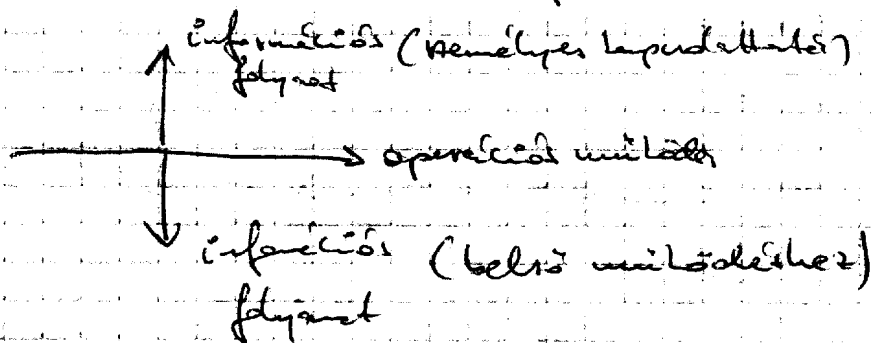 információs (személyes kapcsolattartás)
folyamat
operációs működés
információs (belső működéshez)
folyamat